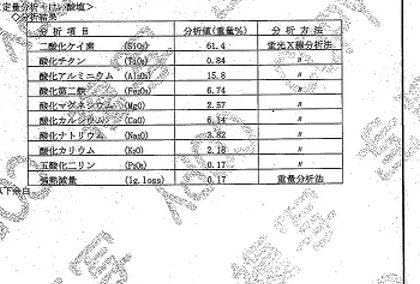 定量分析-けい酸塩>
◇分析結果
分析項目 分析値(重量%) 分析方法
二酸化ケイ素 (SiO₂) 61.4 蛍光X線分析法
酸化チタン (TiO₂) 0.84 〃
酸化アルミニウム (Al₂O₃) 15.8 〃
酸化第二鉄 (Fe₂O₃) 6.74 〃
酸化マグネシウム (MgO) 2.57 〃
酸化カルシウム (CaO) 6.14 〃
酸化ナトリウム (Na₂O) 3.82 〃
酸化カリウム (K₂O) 2.18 〃
五酸化二リン (P₂O₅) 0.17 〃
強熱減量 (Ig.loss) 0.17 重量分析法
以下余白